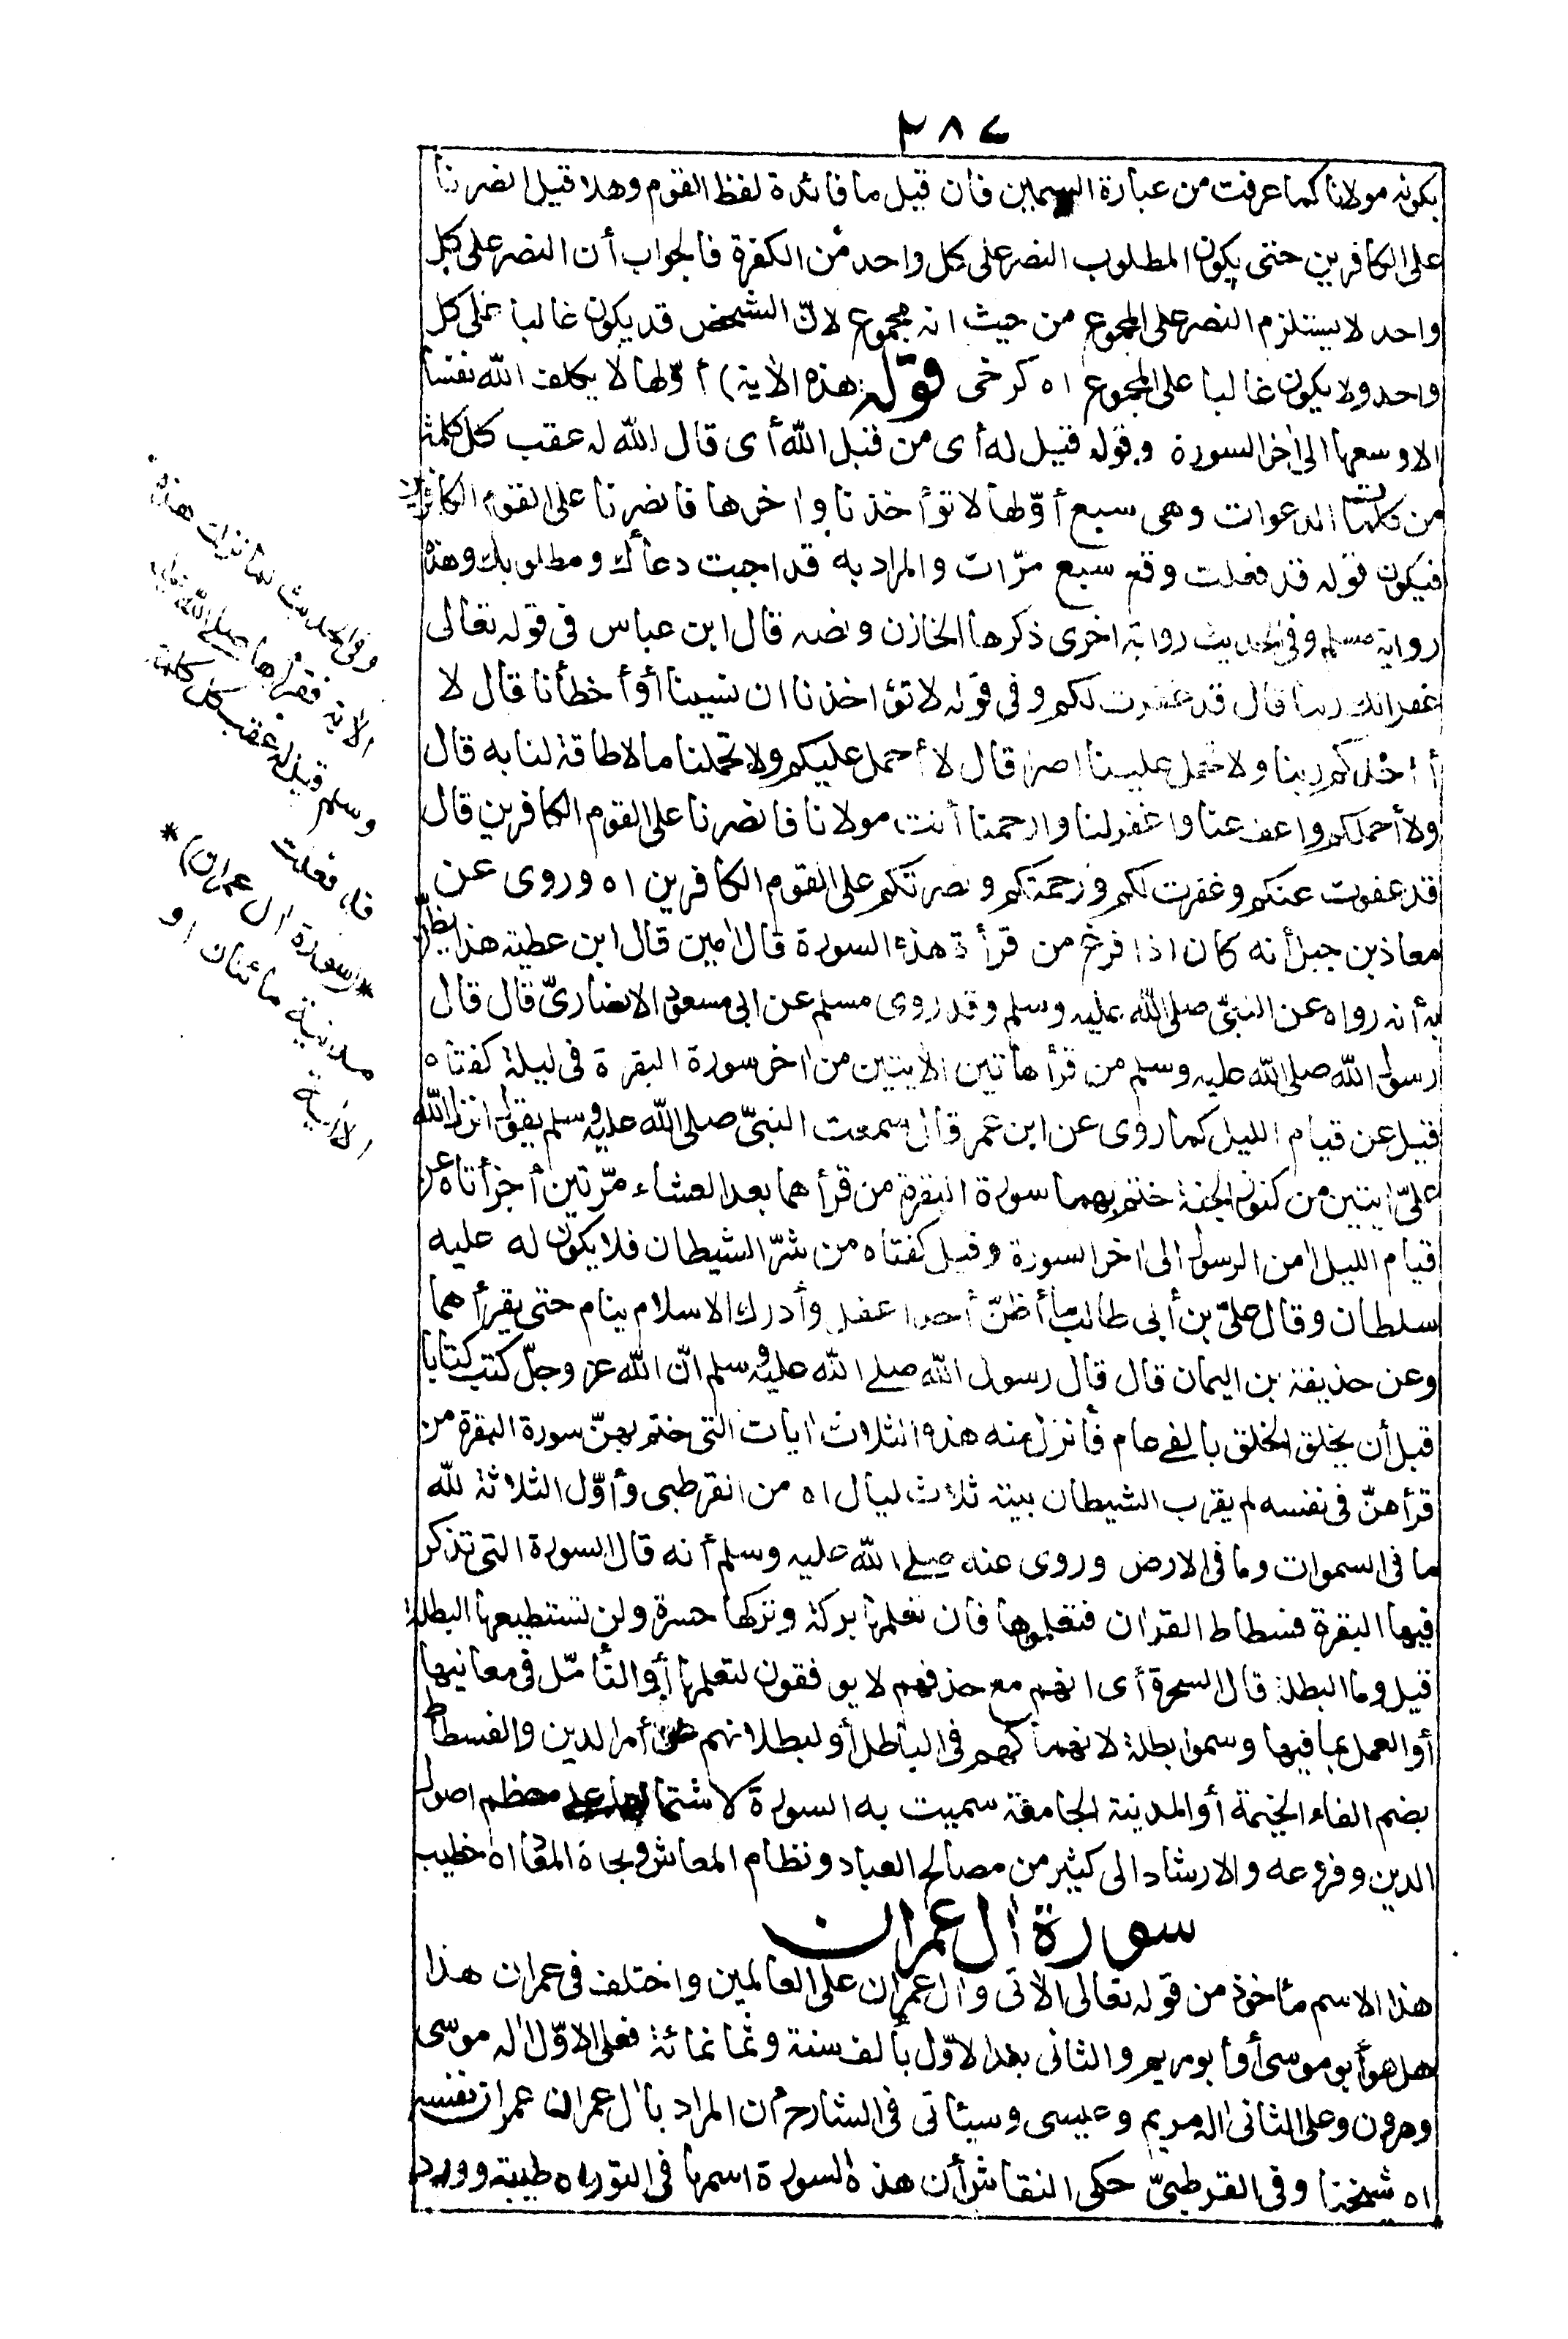 ٢٨٧
بكونه مولانا كما عرفت من عبارة السمين فان قيل ما فائدة لفظ القوم وهلا قيل انصرنا
على الكافرين حتى يكون المطلوب النصر على كل واحد من الكفرة فالجواب أن النصر على كل
واحد لا يستلزم النصر على المجموع من حيث انه مجموع لانّ الشخص قد يكون غالبا على كل
واحد ولا يكون غالبا على المجموع اه كرخى قوله هذه الاية) أوّلها لا يكلف الله نفسا
الا وسعها الى اٰخر السورة وقوله قيل له أى من قبل الله أى قال الله له عقب كل كلمة
من كلمات الدعوات وهى سبع أوّلها لا تؤاخذنا واٰخرها فانصرنا على القوم الكافرين
فيكون قوله قد فعلت وقع سبع مرّات والمراد به قد اجبت دعاءك ومطلوبك وهذه
رواية مسلم وفى الحديث رواية اخرى ذكرها الخازن ونصه قال ابن عباس فى قوله تعالى
غفرانك ربنا قال قد غفرت لكم وفى قوله لا تؤاخذنا ان نسينا أو أخطأنا قال لا
أؤاخذكم ربنا ولا تحمل علينا اصرا قال لا أحمل عليكم ولا تحملنا ما لا طاقة لنا به قال
ولا أحملكم واعف عنا واغفر لنا وارحمنا أنت مولانا فانصرنا على القوم الكافرين قال
قد عفوت عنكم وغفرت لكم ورحمتكم ونصرتكم على القوم الكافرين اه وروى عن
معاذ بن جبل أنه كان اذا فرغ من قرأة هذه السورة قال اٰمين قال ابن عطية هذا يظنّ
به أنه رواه عن النبىّ صلى الله عليه وسلم وقد روى مسلم عن ابى مسعود الانصارىّ قال قال
رسول الله صلى الله عليه وسلم من قرأ هاتين الاٰيتين من اٰخر سورة البقرة فى ليلة كفتاه
قيل عن قيام الليل كما روى عن ابن عمر قال سمعت النبىّ صلى الله عليه وسلم يقول انزل الله
علىّ اٰيتين من كنوز الجنة ختم بهما سورة البقرة من قرأهما بعد العشاء مرّتين أجزأتاه عن
قيام الليل اٰمن الرسول الى اٰخر السورة وقيل كفتاه من شرّ الشيطان فلا يكون له عليه
سلطان وقال علىّ بن أبى طالب ما أظنّ أحدا عقل وأدرك الاسلام ينام حتى يقرأهما
وعن حذيفة بن اليمان قال قال رسول الله صلى الله عليه وسلم انّ الله عز وجلّ كتب كتابا
قبل أن يخلق الخلق بالفى عام فأنزل منه هذه الثلاث اٰيات التى ختم بهنّ سورة البقرة من
قرأهنّ فى نفسه لم يقرب الشيطان بيته ثلاث ليال اه من القرطبى وأوّل الثلاثة لله
ما فى السموات وما فى الارض وروى عنه صلى الله عليه وسلم أنه قال السورة التى تذكر
فيها البقرة فسطاط القراٰن فتعلموها فان تعلمها بركة وتركها حسرة ولن تستطيعها البطلة
قيل وما البطلة قال السحرة أى انهم مع حذقهم لا يوفقون لتعلمها أو التأمّل فى معانيها
أو العمل بما فيها وسموا بطلة لانهماكهم فى الباطل أو لبطلانهم عن أمر الدين والفسطاط
بضم الفاء الخيمة أو المدينة الجامعة سميت به السورة لاشتمالها على معظم اصول
الدين وفروعه والارشاد الى كثير من مصالح العباد ونظام المعاش ونجاة المعاد اه خطيب
سورة اٰل عمران
هذا الاسم مأخوذ من قوله تعالى الاٰتى واٰل عمران على العالمين واختلف فى عمران هذا
هل هو أبو موسى أو أبو مريم والثانى بعد الاوّل بألف سنة وثمانمائة فعلى الاوّل اٰله موسى
وهرون وعلى الثانى اٰله مريم وعيسى وسيأتى فى الشارح ان المراد باٰل عمران عمران نفسه
اه شيخنا وفى القرطبىّ حكى النقاش أن هذه السورة اسمها فى التوراه طيبة وورد
وفى الحديث لما نزلت هذه
الاٰية فقرأها صلى الله عليه
وسلم قيل له عقب كل كلمة
قد فعلت
*(سورة اٰل عمران)*
مدنية مائتان او
الاٰية